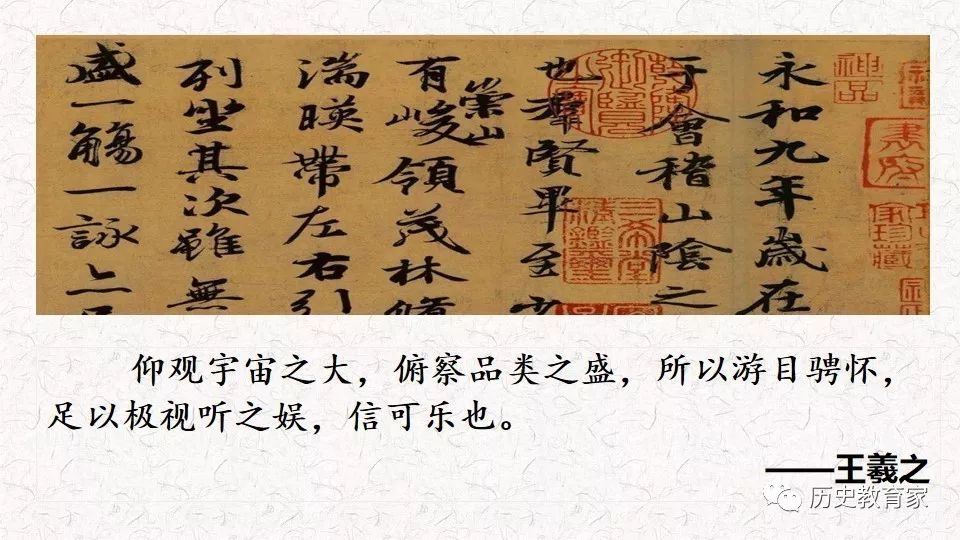 永和九年歲在
于會稽山陰之
也羣賢畢至少
崇山
有峻領茂林脩
湍暎帶左右引
列坐其次雖無
盛一觴一詠亦足
神品
仰观宇宙之大，俯察品类之盛，所以游目骋怀，
足以极视听之娱，信可乐也。
——王羲之
历史教育家